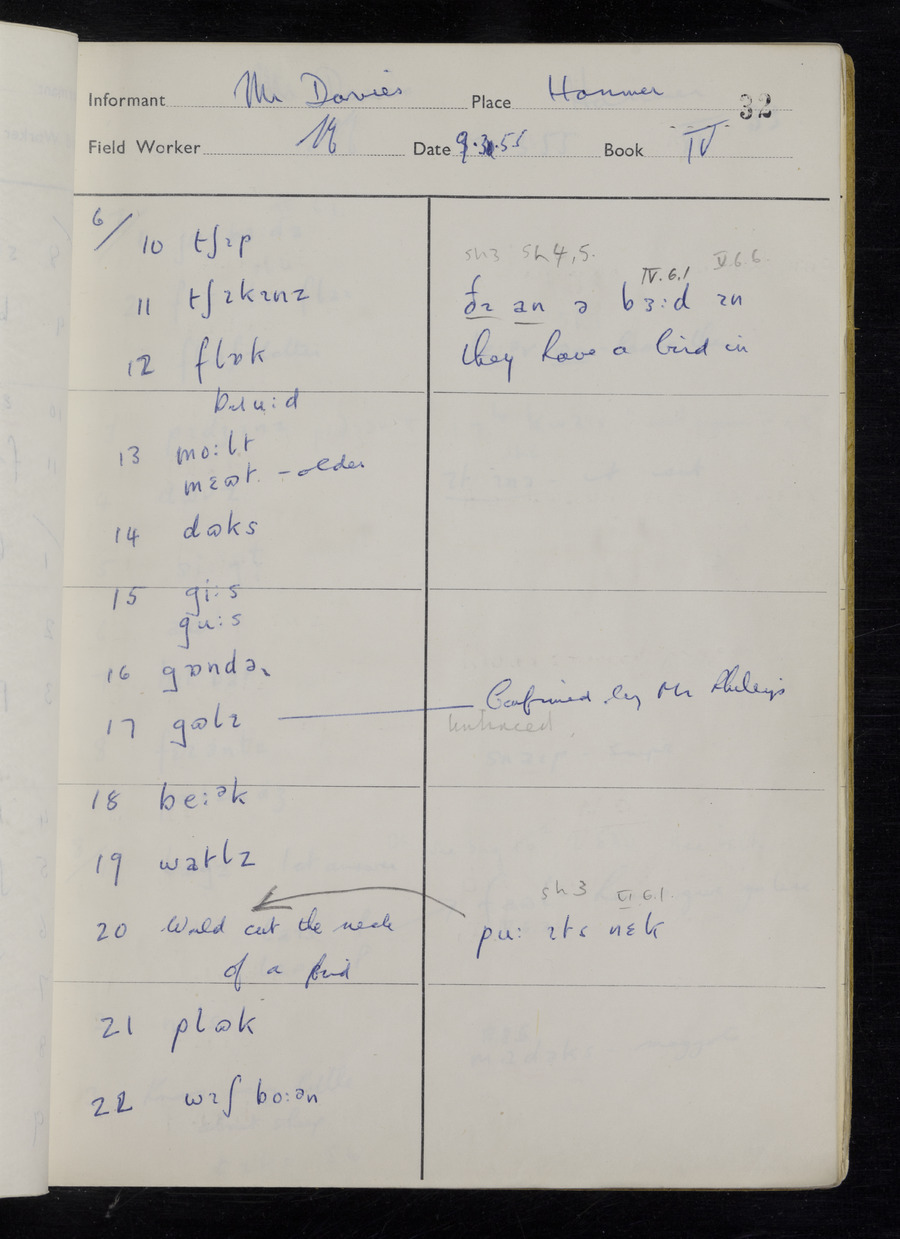 Informant Mr Davies Place Hanmer 32
Field Worker Date 9.3.55 Book IV
6/
10 tʃɪp
11 tʃɪkɪnz
12 flɒk
bɹu:d
13 mo:lt
mɛɷt - older
14 dɷks
15 gi:s
gu:s
16 gɒndəɹ
17 gɷlz
18 be:ᵊk
19 watlz
20 Would cut the neck
of a bird
21 plɷk
22 wɪʃ bo:ən
sh3 sh4,5.
IV.6.1 V.6.6.
ðɪ an ə bɜ:d ɪn
they have a bird in
Confirmed by Mr
sh3 VI.6.1.
pu: ɪts nɛk